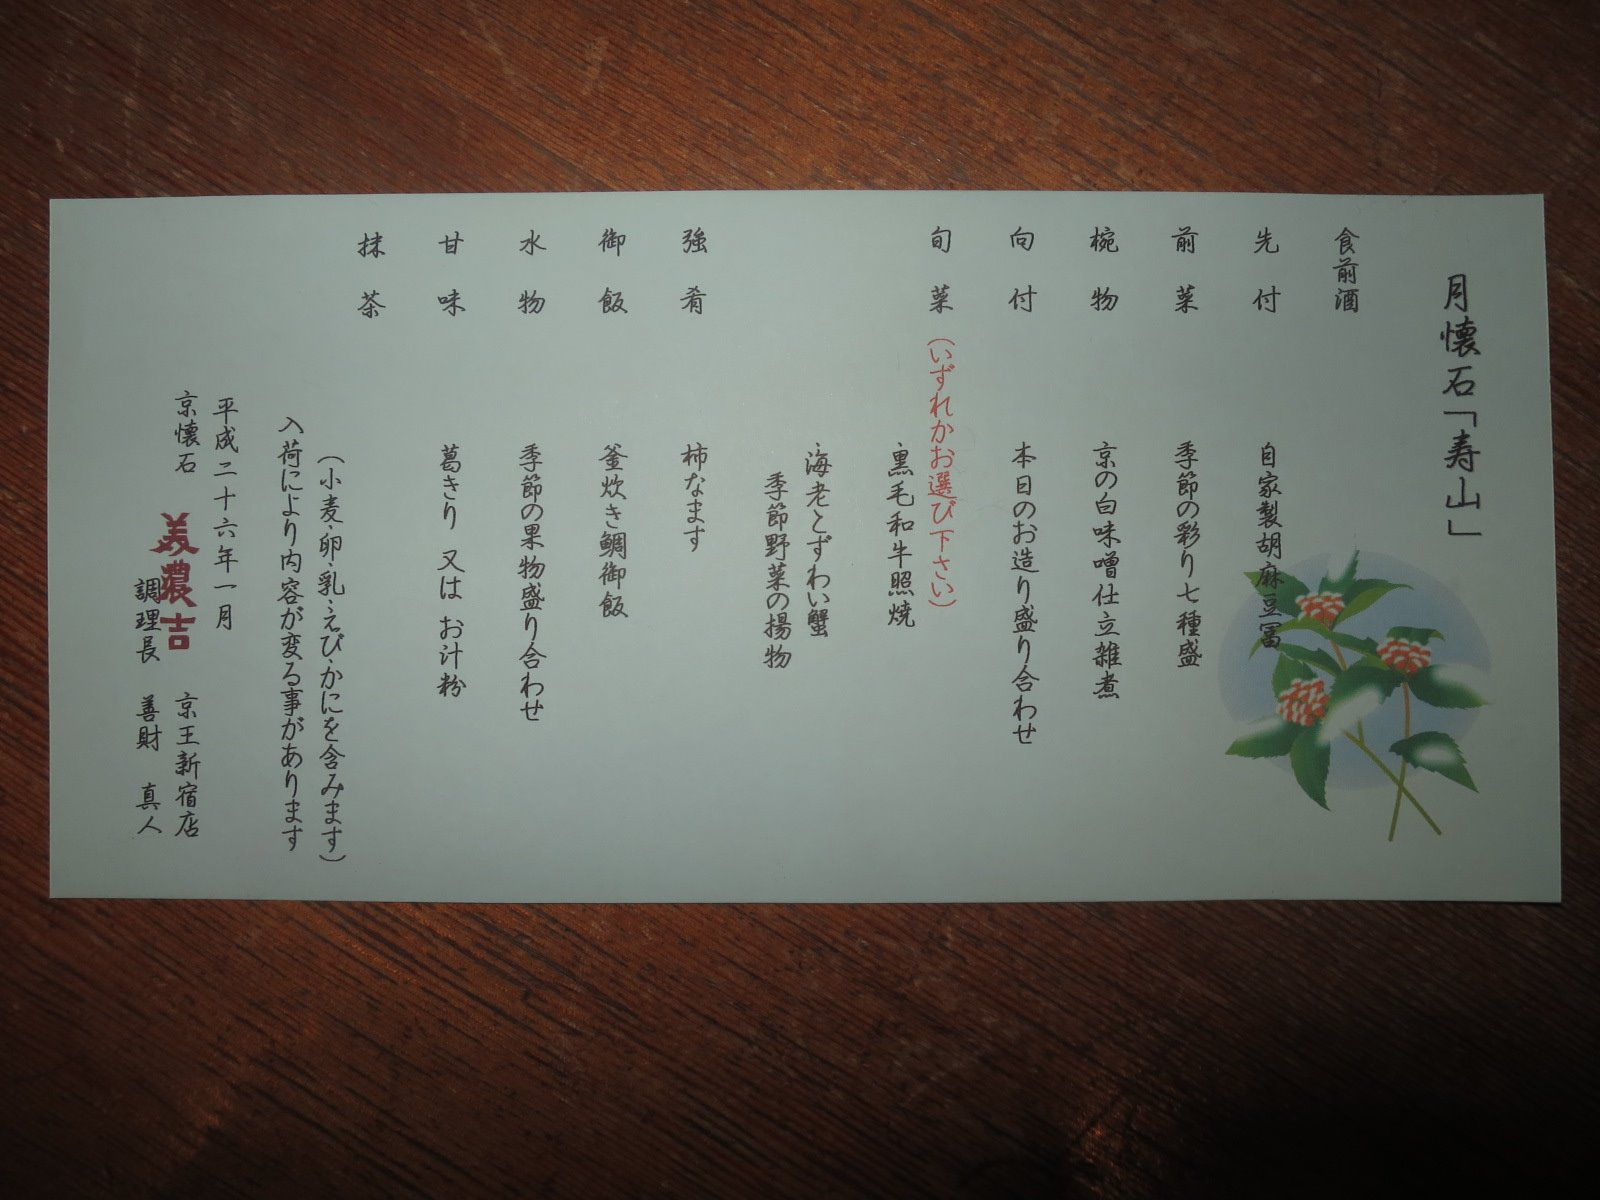 月懐石「寿山」
食前酒
先付 自家製胡麻豆冨
前菜 季節の彩り七種盛
椀物 京の白味噌仕立雑煮
向付 本日のお造り盛り合わせ
旬菜(いずれかお選び下さい)
黒毛和牛照焼
海老とずわい蟹
季節野菜の揚物
強肴 柿なます
御飯 釜炊き鯛御飯
水物 季節の果物盛り合わせ
甘味 葛きり 又は お汁粉
抹茶
(小麦・卵・乳・えび・かにを含みます)
入荷により内容が変る事があります
平成二十六年一月
京懐石 美濃吉 京王新宿店
調理長 善財 真人